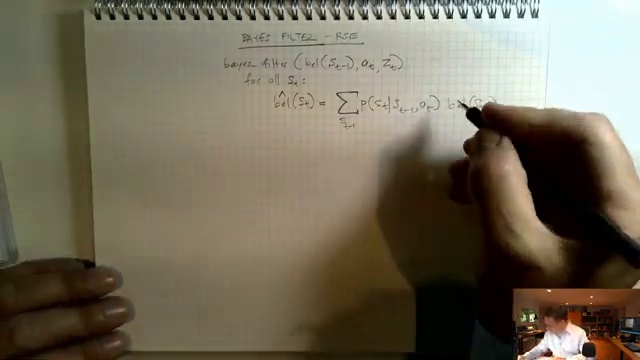 BAYES FILTER - RSE
bayes filter (bel(s_{t-1}), a_t, z_t)
for all s_t:
b̂el(s_t) = ∑_{s_{t-1}} p(s_t | s_{t-1}, a_t) bel(s